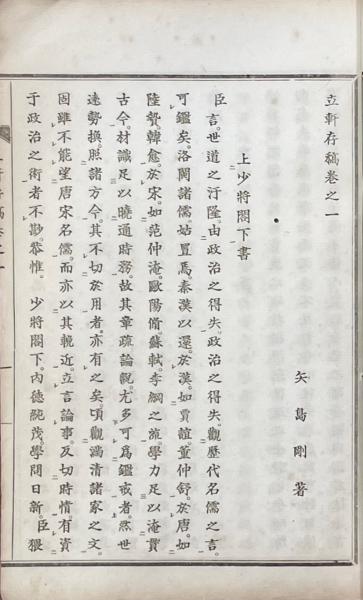 立軒存稿卷之一
矢島剛著
上少將閣下書
臣言。世道之汙隆。由政治之得失。政治之得失。觀歷代名儒之言。
可鑑矣。洛閩諸儒。姑置焉。秦漢以還。於漢。如賈誼董仲舒。於唐。如
陸贄。韓愈。於宋。如范仲淹。歐陽脩。蘇軾。李綱之流。學力足以淹貫
古今。材識足以曉通時務。故其章疏論說。尤多可爲鑑戒者。然世
遠勢換。照諸方今。其不切於用者。亦有之矣。頃觀滿清諸家之文。
固雖不能望唐宋名儒。而亦以其輓近。立言論事。反切時情。有資
于政治之術者不尠。恭惟。 少將閣下。內德純茂。學問日新。臣猥